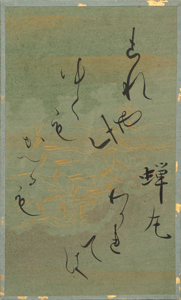 蝉丸
これや
此
ゆくも
かへるも
わかれ
ては